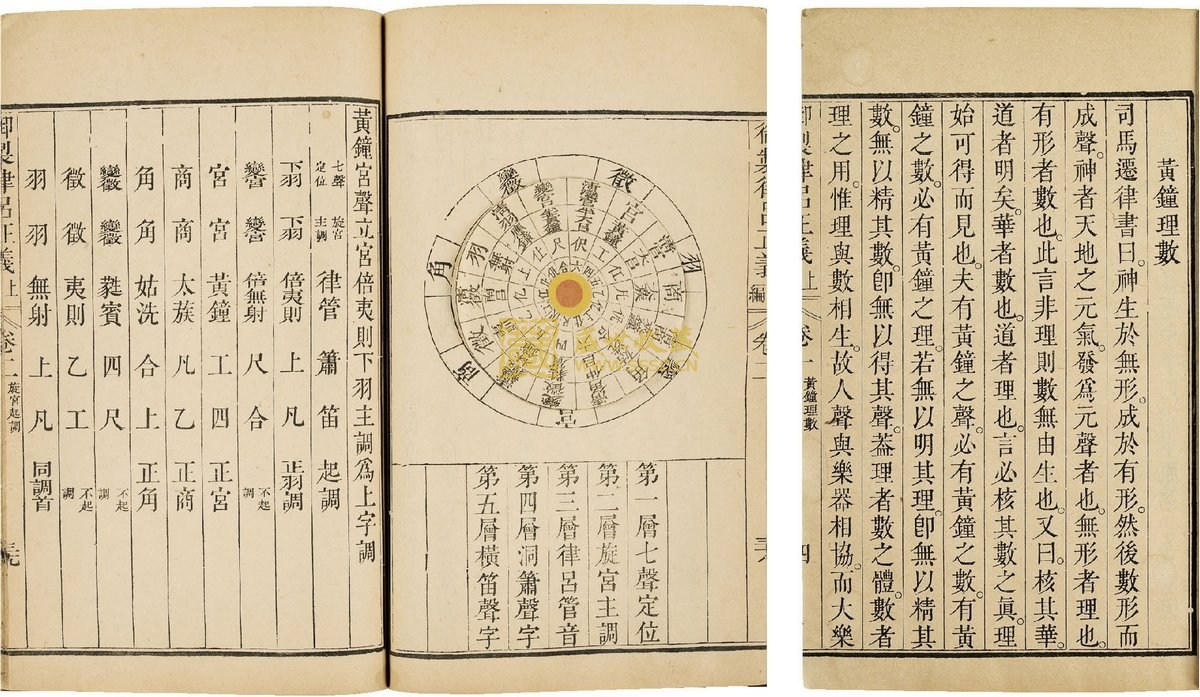 黃鐘理數
司馬遷律書曰。神生於無形。成於有形。然後數形而
成聲。神者天地之元氣。發爲元聲者也。無形者理也。
有形者數也。此言非理則數無由生也。又曰。核其華。
道者明矣。華者數也。道者理也。言必核其數之眞。理
始可得而見也。夫有黃鐘之聲。必有黃鐘之數。有黃
鐘之數。必有黃鐘之理。若無以明其理。卽無以精其
數。無以精其數。卽無以得其聲。葢理者數之體。數者
理之用。惟理與數相生。故人聲與樂器相協。而大樂
御製律呂正義上 卷一 黃鐘理數 四
御製律呂正義 編 卷二 三八
徵
羽
角
商
宮
變徵
變宮
第一層七聲定位
第二層旋宮主調
第三層律呂管音
第四層洞簫聲字
第五層橫笛聲字
黃鐘宮聲立宮倍夷則下羽主調爲上字調
七聲定位 旋宮主調 律管 簫 笛 起調
下羽 下羽 倍夷則 上 凡 正羽調
變宮 變宮 倍無射 尺 合 不起調
宮 宮 黃鐘 工 四 正宮
商 商 太蔟 凡 乙 正商
角 角 姑洗 合 上 正角
變徵 變徵 蕤賓 四 尺 不起調
徵 徵 夷則 乙 工 不起調
羽 羽 無射 上 凡 同調首
御製律呂正義上 卷二 旋宮起調 三九